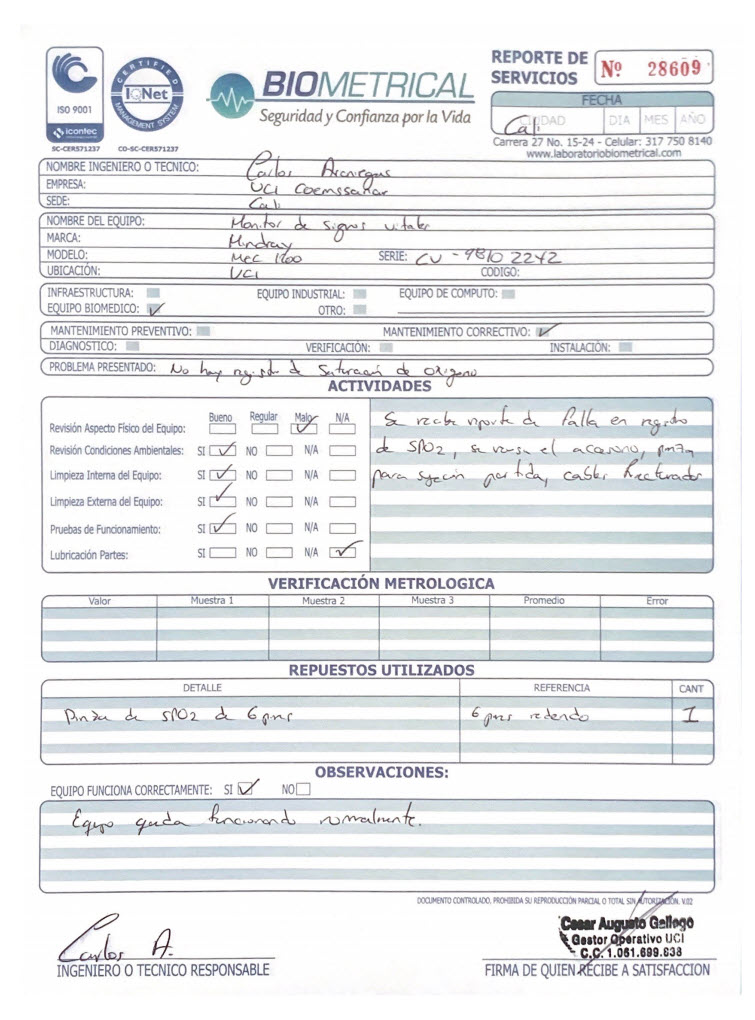 ISO 9001
icontec
SC-CER571237
CERTIFIED
IQNet
MANAGEMENT SYSTEM
CO-SC-CER571237
BIOMETRICAL
Seguridad y Confianza por la Vida
REPORTE DE SERVICIOS Nº 28609
FECHA
CIUDAD DIA MES AÑO
Cali
Carrera 27 No. 15-24 - Celular: 317 750 8140
www.laboratoriobiometrical.com
NOMBRE INGENIERO O TECNICO: Carlos Arciniegas
EMPRESA: UCI Coemssanar
SEDE: Cali
NOMBRE DEL EQUIPO: Monitor de signos vitales
MARCA: Mindray
MODELO: Mec 1200 SERIE: CU - 9810 2242
UBICACIÓN: UCI CODIGO:
INFRAESTRUCTURA: EQUIPO INDUSTRIAL: EQUIPO DE COMPUTO:
EQUIPO BIOMEDICO: ✓ OTRO:
MANTENIMIENTO PREVENTIVO: MANTENIMIENTO CORRECTIVO: ✓
DIAGNOSTICO: VERIFICACIÓN: INSTALACIÓN:
PROBLEMA PRESENTADO: No hay registro de Saturación de oxigeno
ACTIVIDADES
Bueno Regular Malo N/A
Revisión Aspecto Físico del Equipo: ✓
Revisión Condiciones Ambientales: SI ✓ NO N/A
Limpieza Interna del Equipo: SI ✓ NO N/A
Limpieza Externa del Equipo: SI ✓ NO N/A
Pruebas de Funcionamiento: SI ✓ NO N/A
Lubricación Partes: SI NO N/A ✓
Se recibe reporte de falla en registro
de SPO2, se revisa el accesorio, pinza
para sujeción partida, cables fracturados
VERIFICACIÓN METROLOGICA
Valor Muestra 1 Muestra 2 Muestra 3 Promedio Error
REPUESTOS UTILIZADOS
DETALLE REFERENCIA CANT
Pinza de SPO2 de 6 pines 6 pines redondo 1
OBSERVACIONES:
EQUIPO FUNCIONA CORRECTAMENTE: SI ✓ NO
Equipo queda funcionando normalmente.
DOCUMENTO CONTROLADO, PROHIBIDA SU REPRODUCCIÓN PARCIAL O TOTAL SIN AUTORIZACIÓN. V.02
Carlos A.
INGENIERO O TECNICO RESPONSABLE
Cesar Augusto Gallego
Gestor Operativo UCI
C.C. 1.061.699.838
FIRMA DE QUIEN RECIBE A SATISFACCION